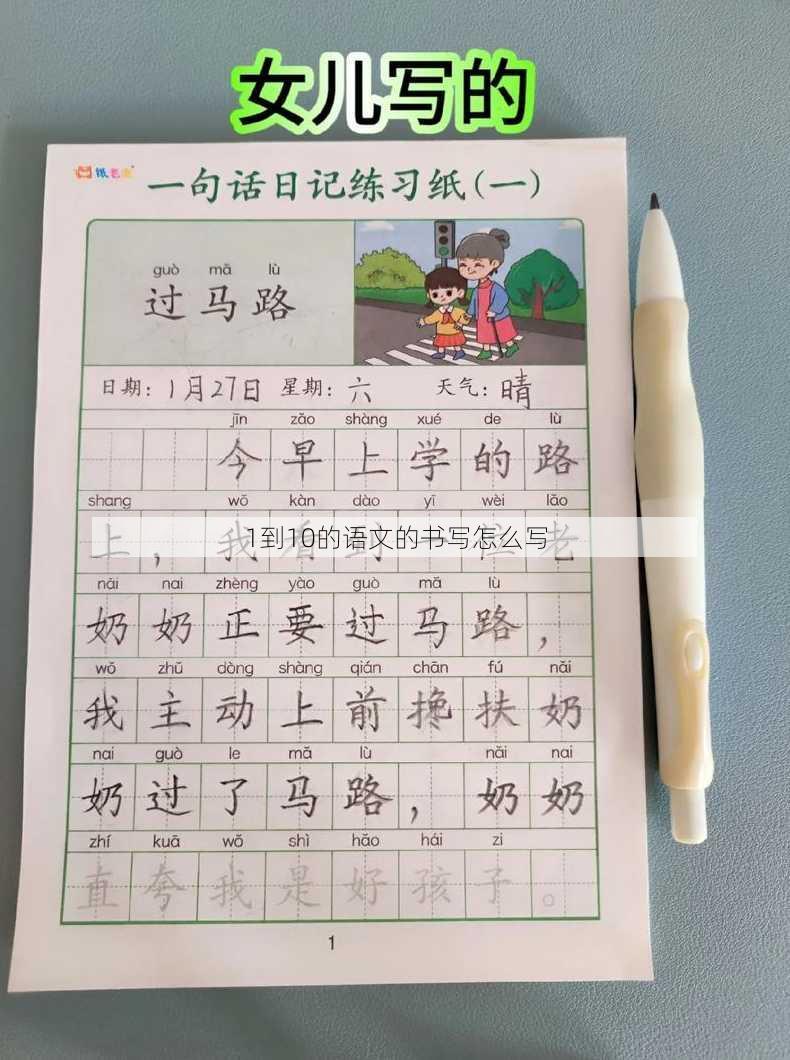 女儿写的
一句话日记练习纸(一)
guò mǎ lù
过马路
日期：1月27日 星期：六 天气：晴
jīn zǎo shàng xué de lù
今早上学的路
shang wǒ kàn dào yī wèi lǎo
上，我看到一位老
1到10的语文的书写怎么写
nǎi nai zhèng yào guò mǎ lù
奶奶正要过马路，
wǒ zhǔ dòng shàng qián chān fú nǎi
我主动上前搀扶奶
nai guò le mǎ lù nǎi nai
奶过了马路，奶奶
zhí kuā wǒ shì hǎo hái zi
直夸我是好孩子。
1